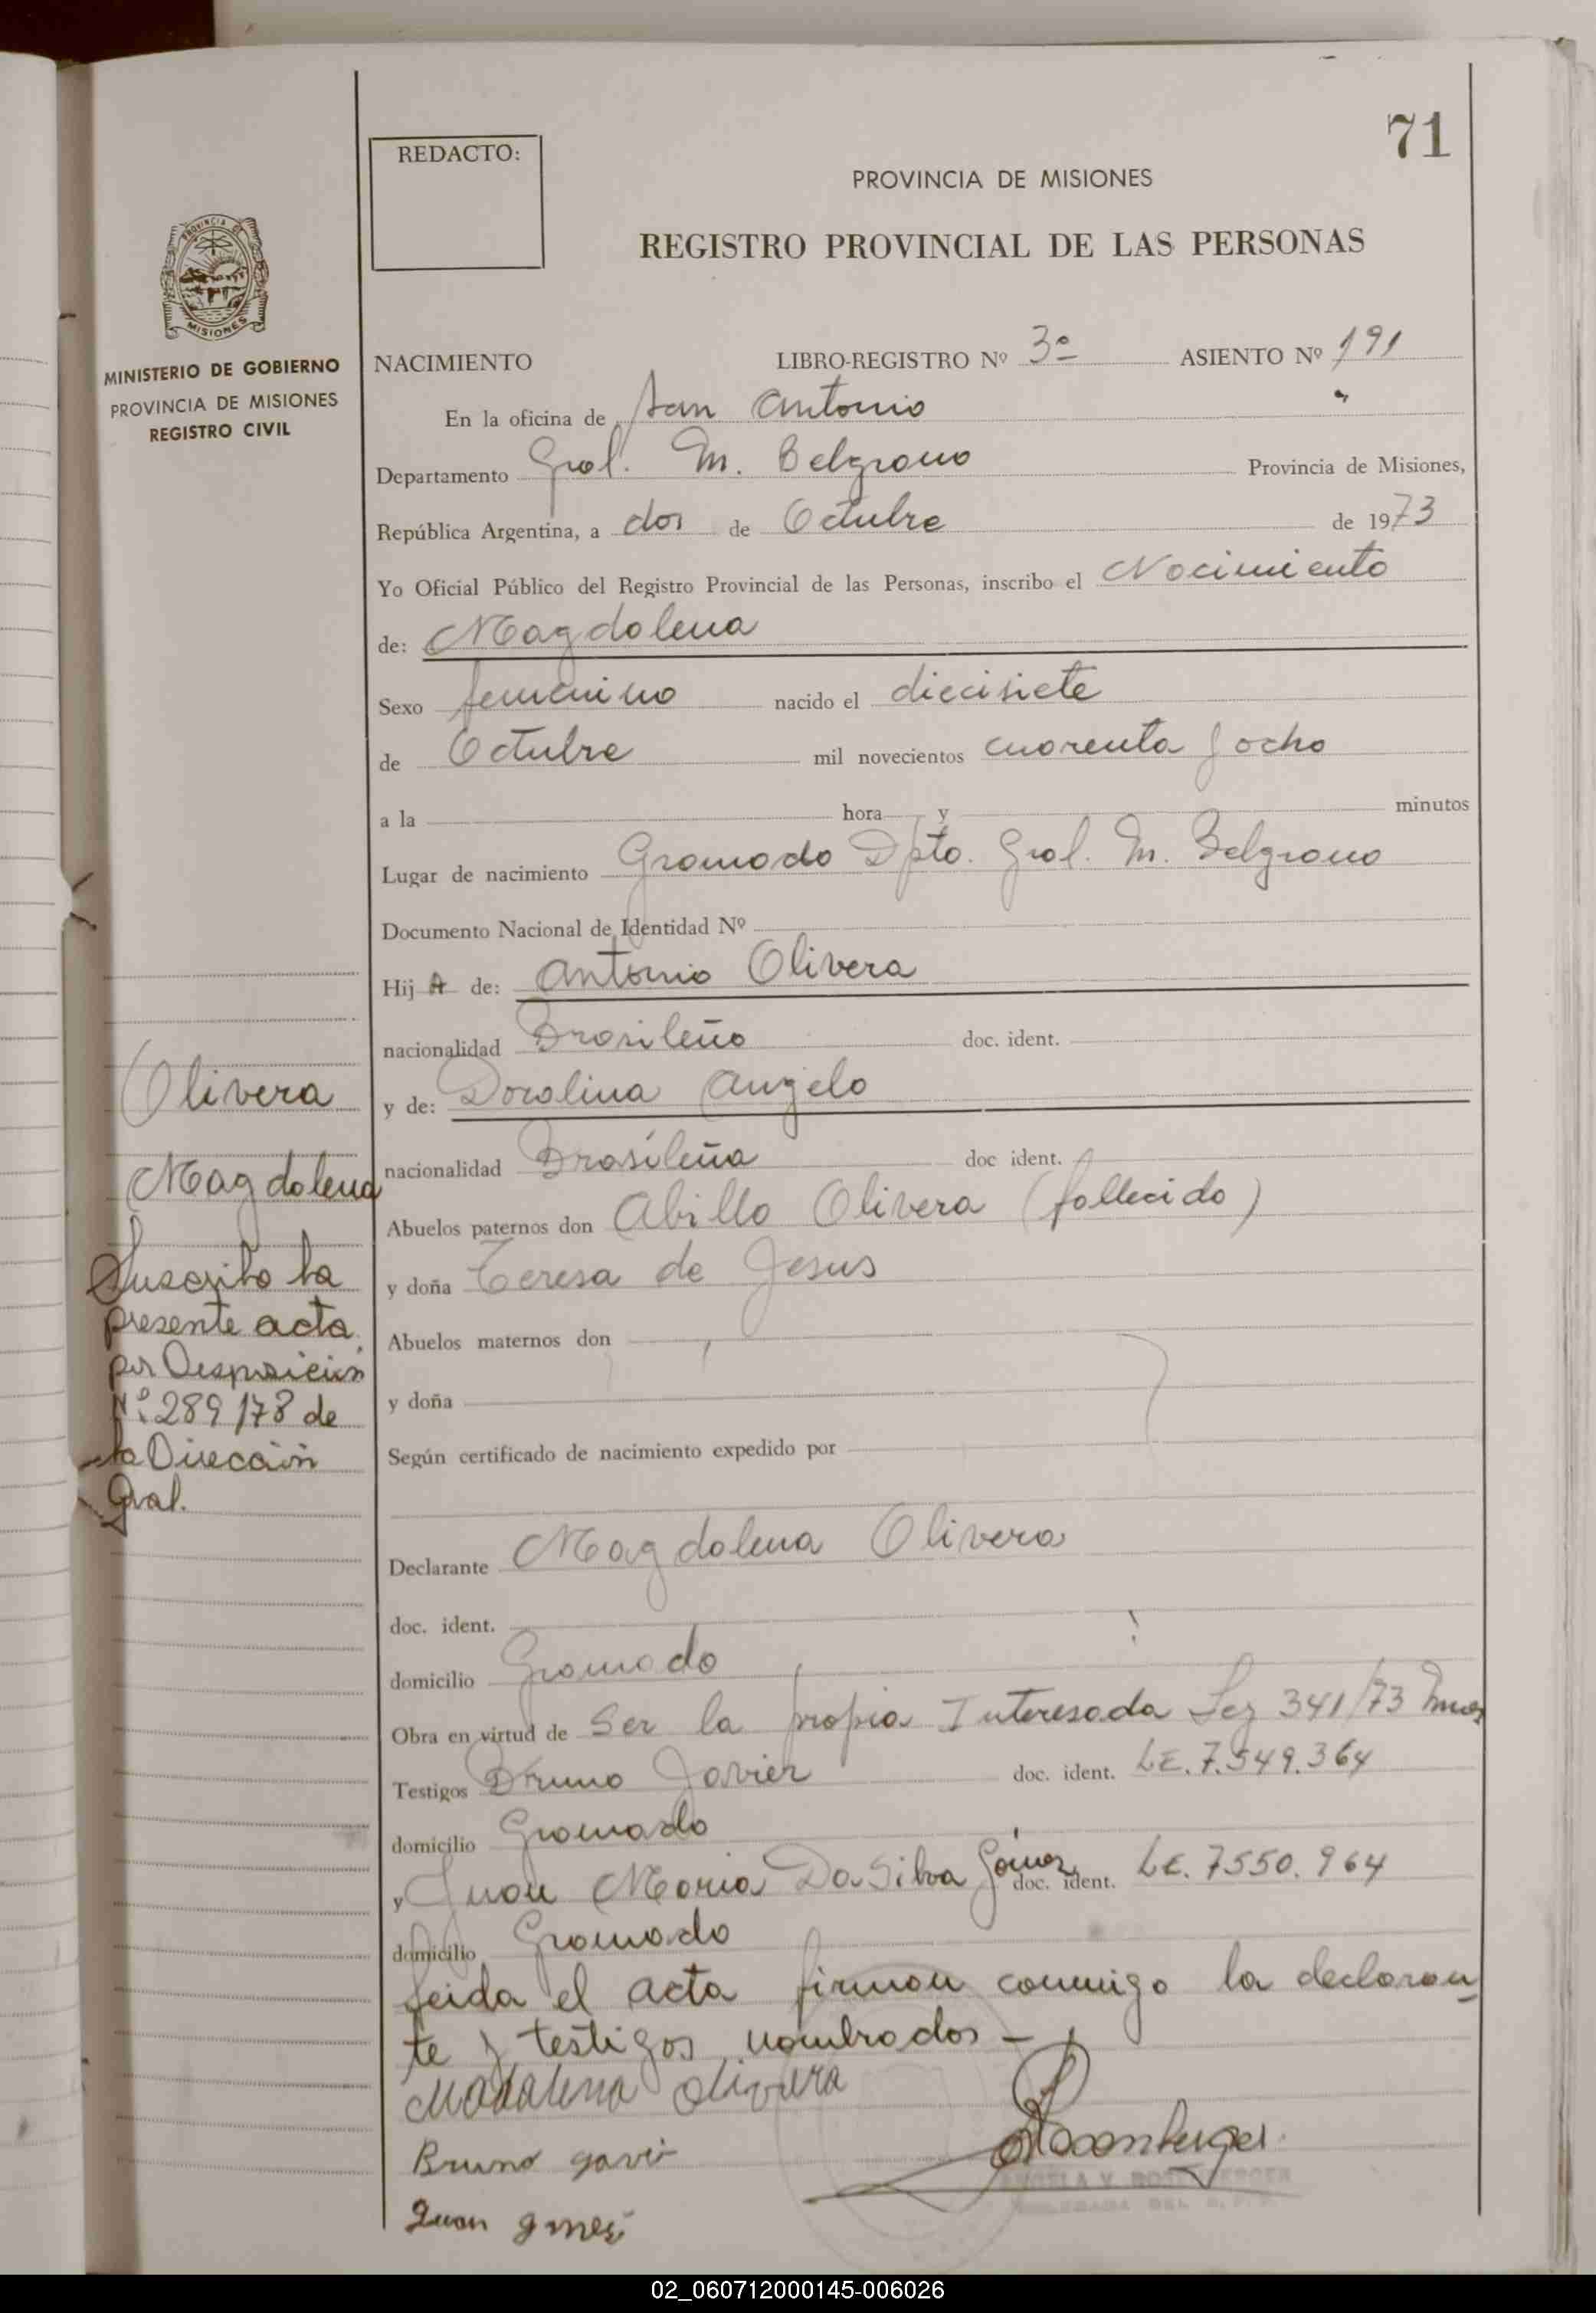 71
REDACTO:
PROVINCIA DE MISIONES
REGISTRO PROVINCIAL DE LAS PERSONAS
PROVINCIA DE
MISIONES
MINISTERIO DE GOBIERNO
PROVINCIA DE MISIONES
REGISTRO CIVIL
NACIMIENTO LIBRO-REGISTRO Nº 3º ASIENTO Nº 191
En la oficina de San Antonio
Departamento Gral. M. Belgrano Provincia de Misiones,
República Argentina, a dos de Octubre de 1973
Yo Oficial Público del Registro Provincial de las Personas, inscribo el Nacimiento
de: Magdalena
Sexo femenino nacido el diecisiete
de Octubre mil novecientos cuarenta y ocho
a la hora y minutos
Lugar de nacimiento Gramado Dpto. Gral. M. Belgrano
Documento Nacional de Identidad Nº
Hij A de: Antonio Olivera
nacionalidad Brasileño doc. ident.
y de: Doralina Angelo
nacionalidad Brasileña doc ident.
Abuelos paternos don Abillo Olivera (fallecido)
y doña Teresa de Jesus
Abuelos maternos don
y doña
Según certificado de nacimiento expedido por
Declarante Magdalena Olivera
doc. ident.
domicilio Gramado
Obra en virtud de Ser la propia Interesada Ley 341/73
Testigos Bruno Javier doc. ident. LE. 7.549.364
domicilio Gramado
y Juan Maria Da Silva Gómez doc. ident. LE. 7550.964
domicilio Gramado
Leida el acta firman conmigo la declaran
te y testigos nombrados —
Madalena Olivera
Bruno gavir
Juan gmez
Olivera
Magdalena
Suscribo la
presente acta
por Disposición
Nº: 289/78 de
la Dirección
Gral.
02_060712000145-006026